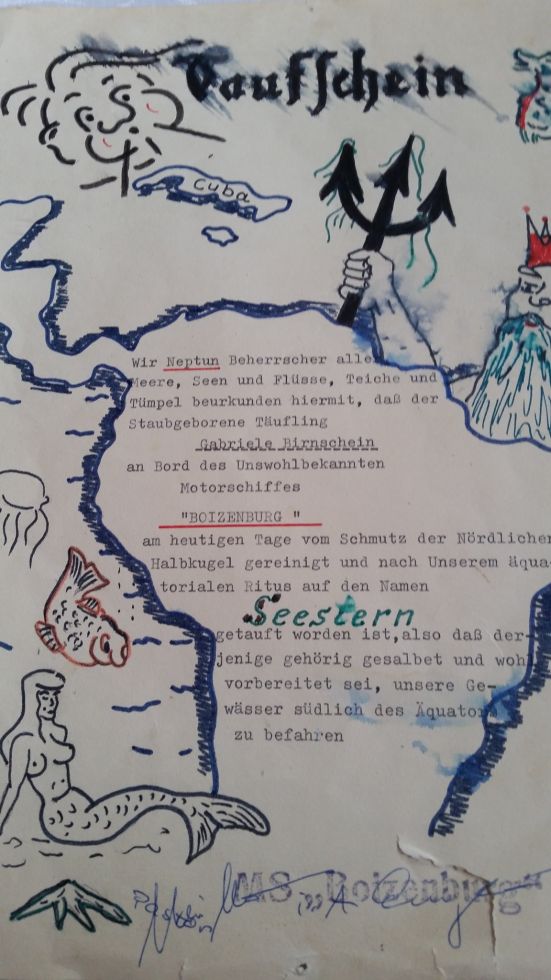 Taufschein
Cuba
Wir Neptun Beherrscher alle
Meere, Seen und Flüsse, Teiche und
Tümpel beurkunden hiermit, daß der
Staubgeborene Täufling
Gabriele Birnschein
an Bord des Unswohlbekannten
Motorschiffes
"BOIZENBURG "
am heutigen Tage vom Schmutz der Nördlichen
Halbkugel gereinigt und nach Unserem äqua-
torialen Ritus auf den Namen
Seestern
getauft worden ist,also daß der-
jenige gehörig gesalbet und wohl
vorbereitet sei, unsere Ge-
wässer südlich des Äquator
zu befahren
MS „Boizenburg"